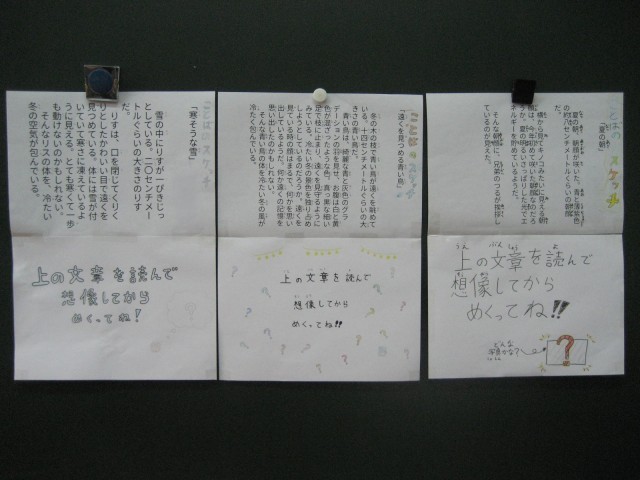 ことばのスケッチ
「寒そうな雪」
雪の中にりすが一ぴきじっ
としている。二〇センチメー
トルぐらいの大きさのりす
だ。
りすは、口を閉じてくりく
りとしたかわいい目で遠くを
見つめている。体には雪が付
いていて寒さに凍えているよ
うに見える。とても寒くて一歩
も動けないのかもしれない。
そんなリスの体を、冷たい
冬の空気が包んでいる。
上の文章を読んで
想像してから
めくってね!
ことばのスケッチ
「遠くを見つめる青い鳥」
冬の木の枝で青い鳥が遠くを眺めて
いる。十四センチメートルぐらいの大
きさの青い鳥だ。
青い鳥は、綺麗な青と灰色のグラ
デーションの羽を見せ、お腹は白と黄
色が混ざったような色、真っ黒な細い
足で枝に止まり、遠くを見守るように
みている。冷たい冬の景色を独り占め
しようとしているのだろうか。遠くを
見ている時の顔はまるで、何かを思い
出しているようだ。遠くの記憶を
思い出したのかもしれない。
そんな青い鳥の体を冷たい冬の風が
冷たく包んでいる。
上の文章を読んで
想像してから
めくってね!!
ことばのスケッチ
「夏の朝」
夏の朝、朝顔が咲いた。青と薄紫色
の約八センチメートルぐらいの朝顔
横から見てキノコみたいに見える朝
ネルギーを貯めているようだ。
そんな朝顔に、兄弟のつるが挨拶し
ているのが見えた。
上の文章を読んで
想像してから
めくってね!!
どんな
写真かな?
?